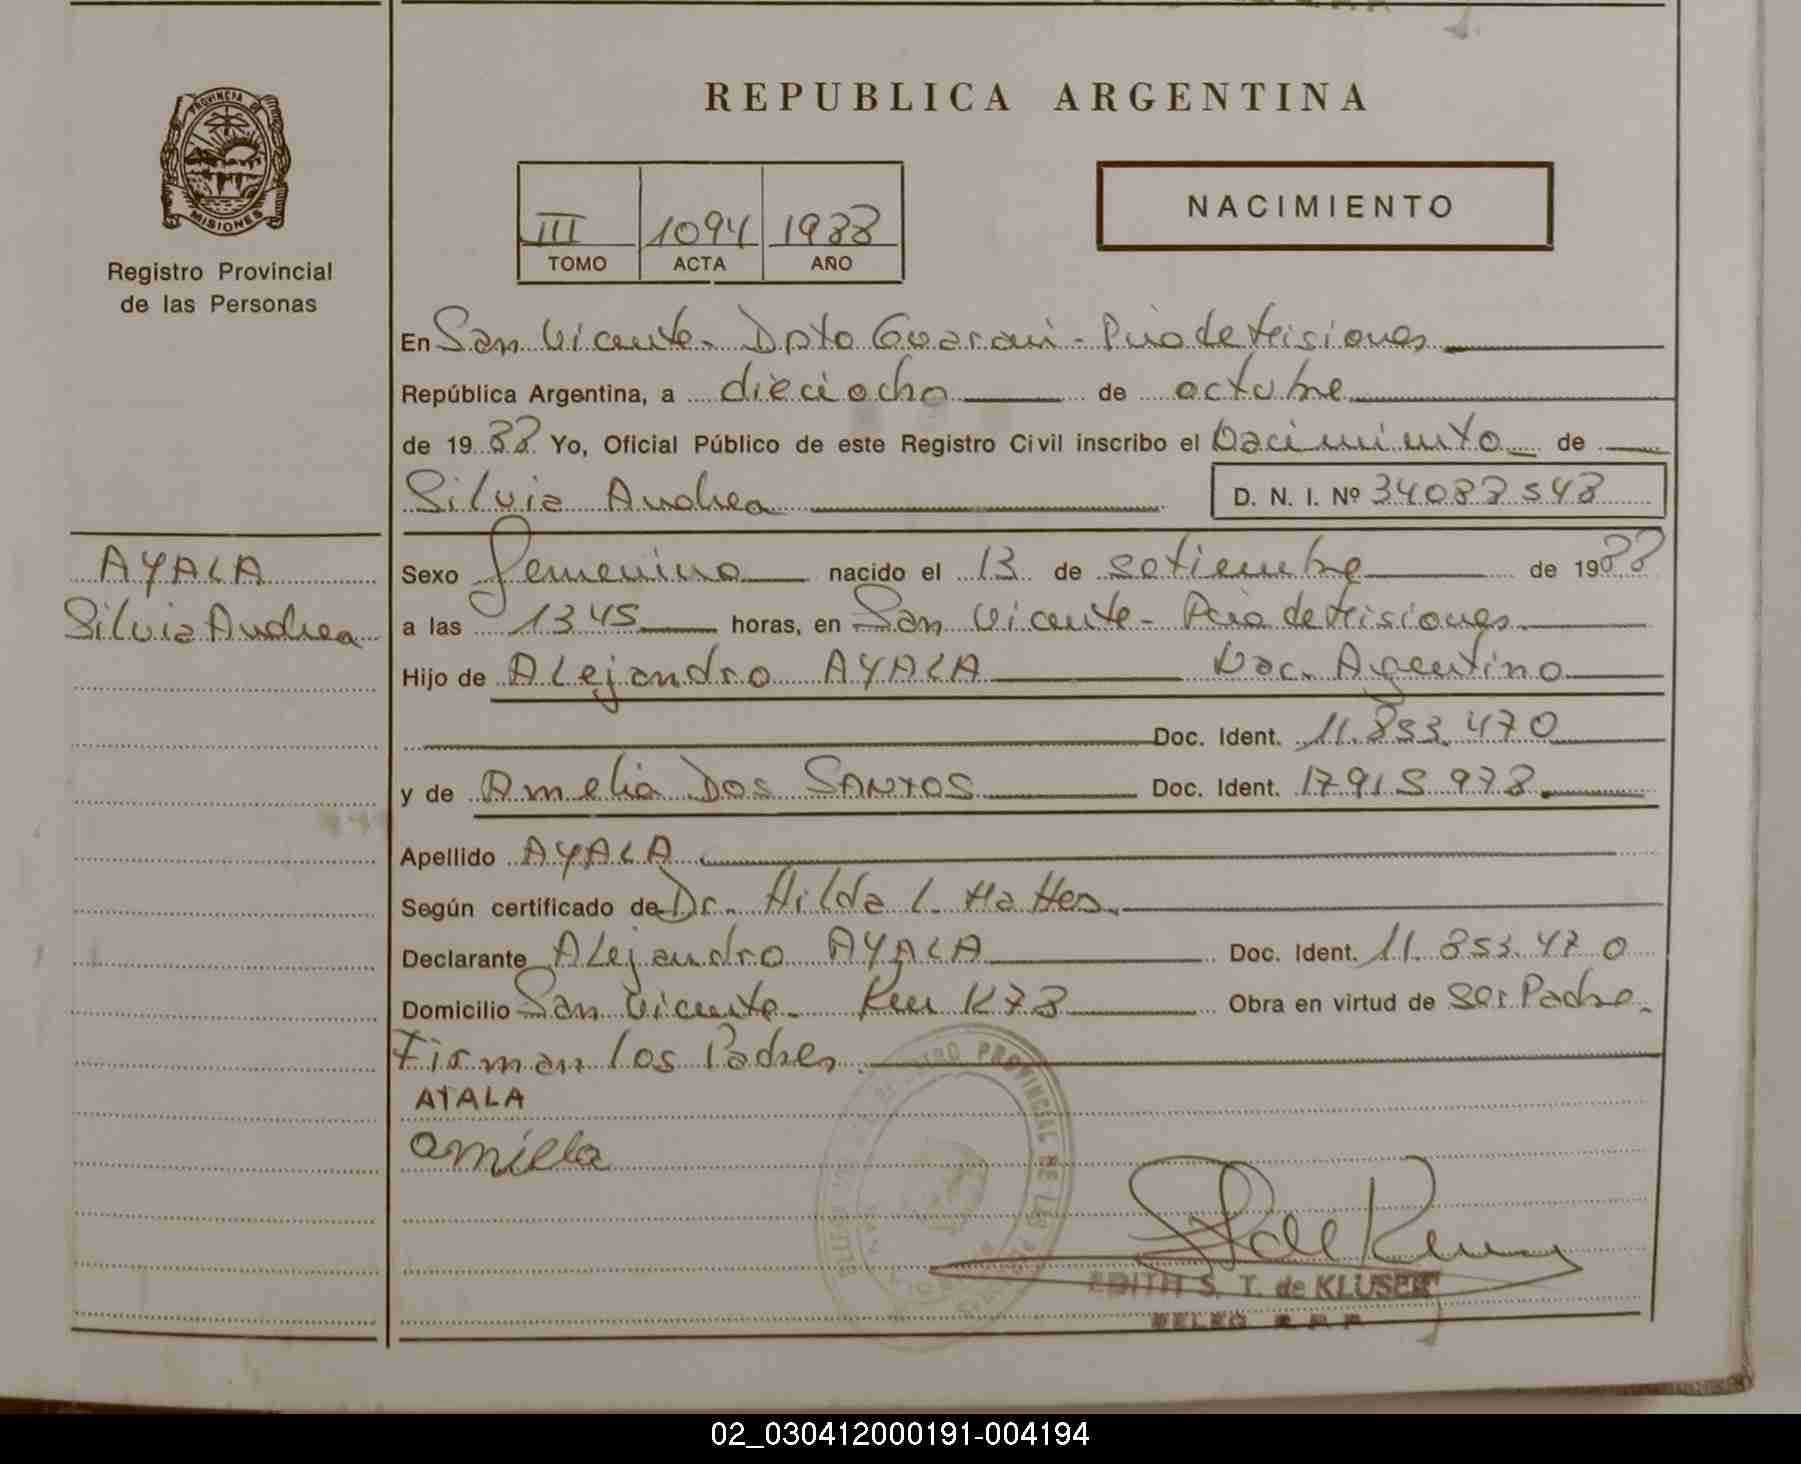 REPUBLICA ARGENTINA
PROVINCIA DE
MISIONES
Registro Provincial
de las Personas
NACIMIENTO
III 1094 1988
TOMO ACTA AÑO
En San Vicente - Dpto Guarani - Pcia de Misiones
República Argentina, a dieciocho de octubre
de 1988 Yo, Oficial Público de este Registro Civil inscribo el Nacimiento de
Silvia Andrea D. N. I. Nº 34088548
AYALA
Silvia Andrea
Sexo femenino nacido el 13 de setiembre de 1988
a las 1345 horas, en San Vicente - Pcia de Misiones
Hijo de Alejandro AYALA Nac. Argentino
Doc. Ident. 11.853.470
y de Amelia Dos SANTOS Doc. Ident. 17915978
Apellido AYALA
Según certificado de Dr. Hilda L. Mattes
Declarante Alejandro AYALA Doc. Ident. 11.853.470
Domicilio San Vicente - Km 1278 Obra en virtud de Ser Padre.
Firman los Padres
AYALA
amiela
REGISTRO PROVINCIAL DE LAS
EDITH S. T. de KLUSER
DELEG R.P.P.
02_030412000191-004194